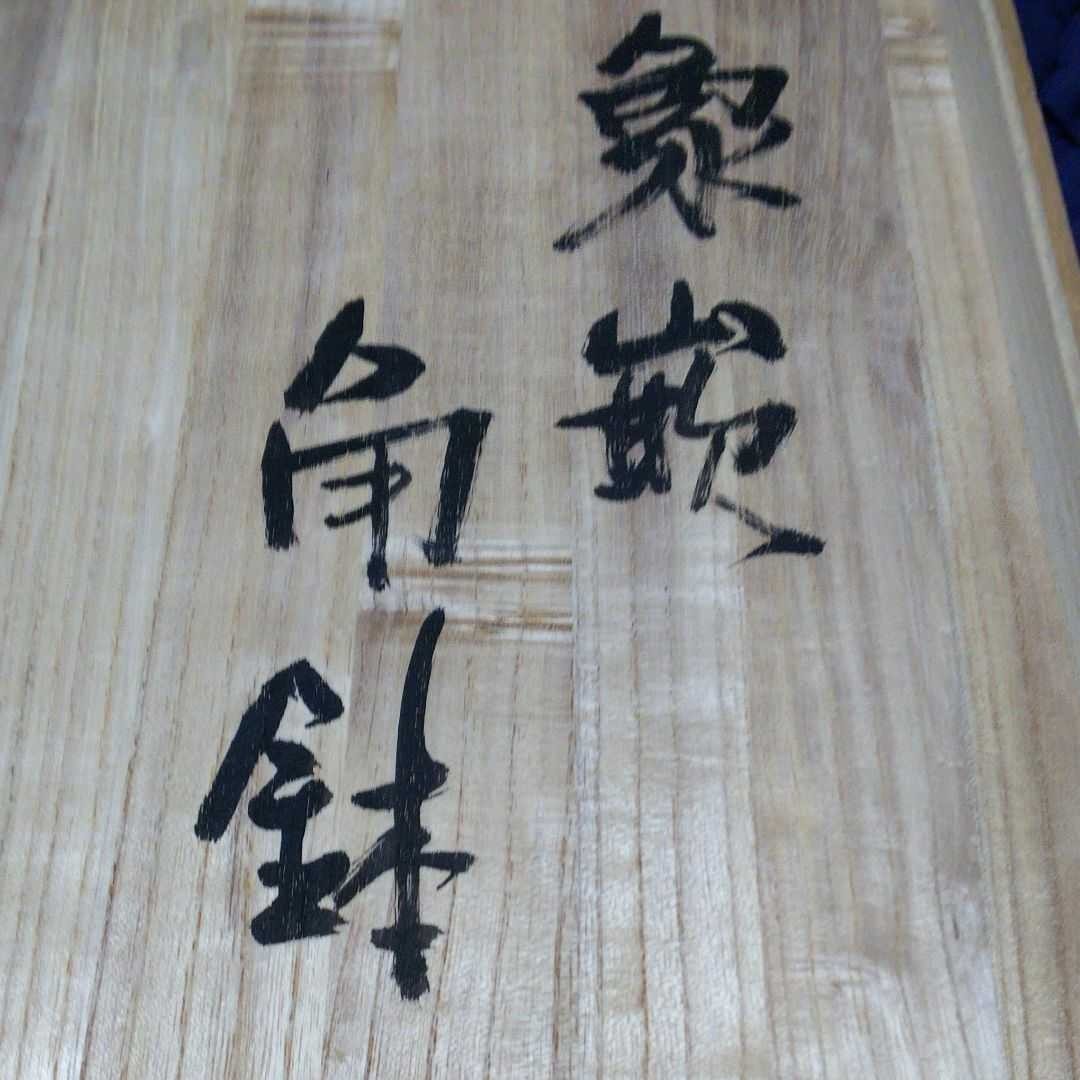 象嵌
角鉢